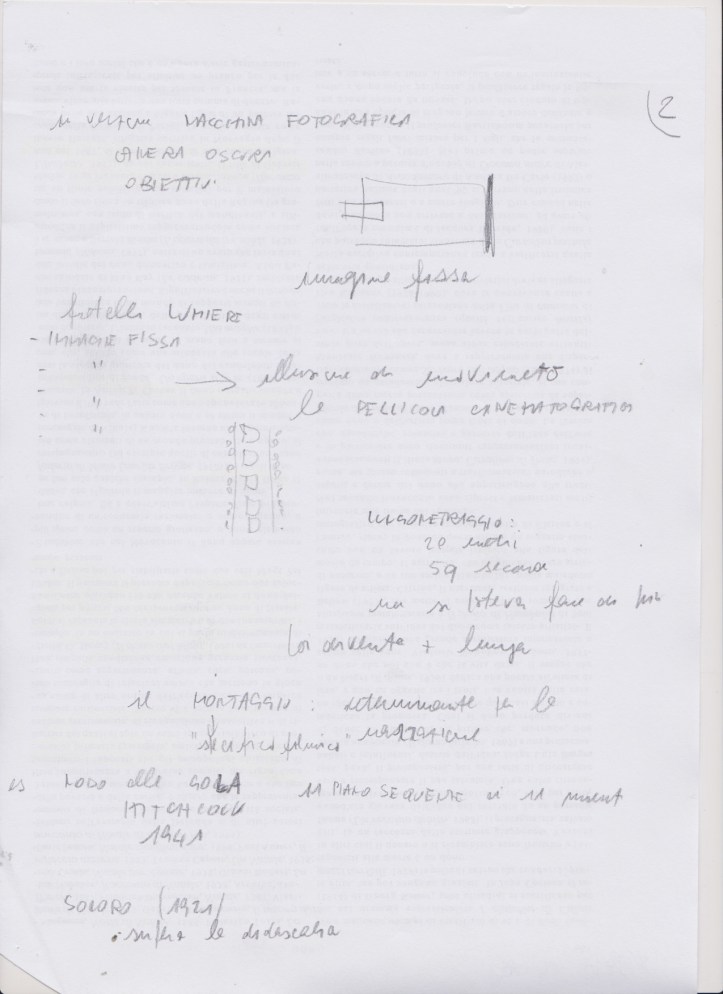 2
MACCHINA FOTOGRAFICA
CAMERA OSCURA
OBIETTIVI
immagine fissa
fratelli LUMIERE
- IMMAGINE FISSA
- "
- "
- "
illusione di movimento
la PELLICOLA CINEMATOGRAFICA
LUNGOMETRAGGIO:
20 metri
59 secondi
non si poteva fare di più
poi diventa + lunga
il MONTAGGIO: determinante per la
"specifico filmico" narrazione
es NODO alla GOLA 11 PIANO SEQUENZE di 11 minuti
HITCHCOCK
1941
SONORO (1921)
• supera la didascalia